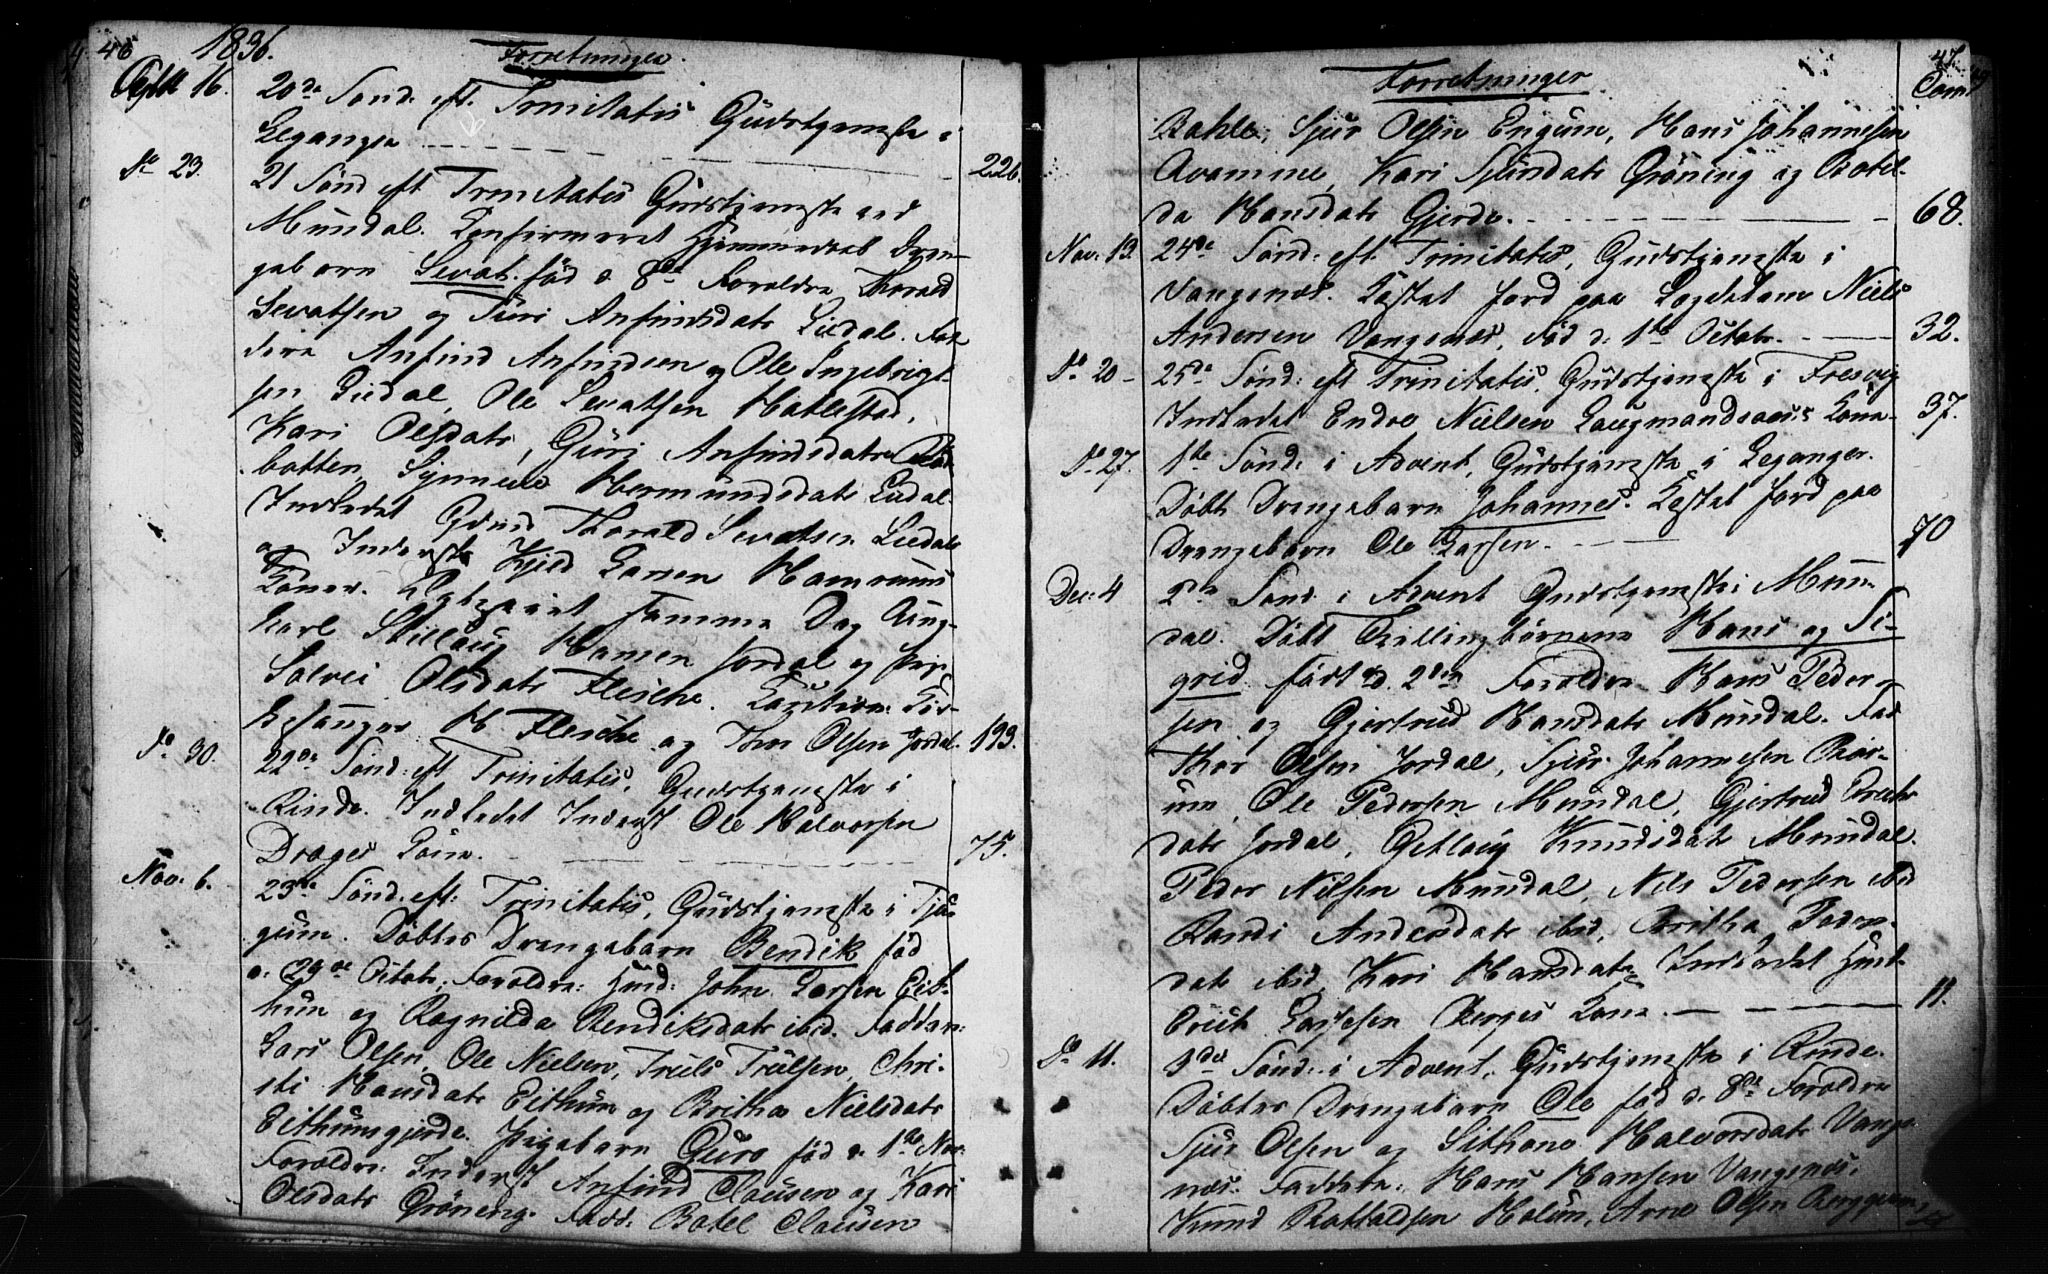 46
1836.
Forretninger.
16.
20de Sønd. eft. Trinitatis Gudstjeneste i
Leganger 226.
Do 23.
21 Sønd eft Trinitatis Gudstjeneste ved
Mundal. Confirmeret Hjemmedøbt Dren-
gebarn Sevat. fød d 8de Forældre Thorald
Sevatsen og Turi Anfindsdatr Liidal. Fad
dere Anfind Anfindsen og Ole Ingebrigt-
sen Liidal, Ole Sevatsen Hatlestad,
Kari Olsdatr, Guri Anfindsdatr
botten, Synneve Hermundsdatr Liidal.
Indledet Gmd Thorald Sevatsen Liidals
og Inderste Kield Larsen Hamrums
Koner. Copuleret samme Dag Ung-
karl Stillaug Hansen Jordal og Pige
Solvei Olsdatr Flesche. Cautions For-
H Flesche og Thor Olsen Jordal. 199.
Do 30.
22de Sønd: eft Trinitatis, Gudstjeneste i
Rinde. Indledet Inderst Ole Halvorsen
Drages Kone. 75.
Nov. 6.
23de Sønd. eft: Trinitatis, Gudstjeneste i Tju-
gum. Døbtes Drengebarn Bendik fød
d. 29de Octobr. Forældre: Husd: John Larsen Eit-
hun og Ragnilda Bendiksdatr ibid. Faddere:
Lars Olsen, Ole Nielsen, Truls Trulsen, Chri-
sti Hansdatr Eithun og Britha Nielsdatr
Eithunsgjerde. Pigebarn Guro fød d. 1ste Nov:
Forældre: Inderst Anfind Clausen og Kari
Olsdatr Grøneng. Fadd. Botel Clausen
47
Forretninger
Com
Bahle, Sjur Olsen Engum, Hans Johannesen
Qvamme, Kari Sjursdatr Grøning og Botel-
da Hansdatr Gjerde. 68.
Nov. 13.
24de Sønd: eft. Trinitatis, Gudstjeneste i
Vangsnes. Kastet Jord paa Lægdslem Niels
Andersen Vangsnes, død d. 1ste Octobr. 32.
Do 20
25de Sønd: eft Trinitatis, Gudstjeneste i Fresvig
Indledet Endre Nielsen Laugmandsaaes Kone 37.
Do 27.
1ste Sønd: i Advent, Gudstjeneste i Leganger.
Døbt Drengebarn Johannes. Kastet Jord paa
Drengebarn Ole Larsen. 70
Dec. 4
2den Sønd. i Advent Gudstjeneste i Mun-
dal. Døbt Tvillingbørnene Hans og Si-
grid født d. 2den Forældre Hans Peder-
sen og Gjertrud Hansdatr Mundal. Fad
Thor Olsen Jordal, Sjur Johannesen Bør-
um, Ole Pedersen Mundal, Gjertrud
datr Jordal, Gitlaug Knudsdatr Mundal.
Peder Nilsen Mundal, Nils Pedersen ibid
Randi Andersdatr ibid, Britha Peders-
datr ibid, Kari Hansdatr. Indledet Husm
Erick Larssen Berges Kone 11.
Do 11.
3die Sønd: i Advent, Gudstjeneste i Rinde.
Døbtes Drengebarn Ole fød d. 8de Forældre
Sjur Olsen og Sithone Halvorsdatr Vangs-
nes. Faddere: Hans Hansen Vangsnes,
Knud Botholdsen Holum, Arne Olsen Berggum,